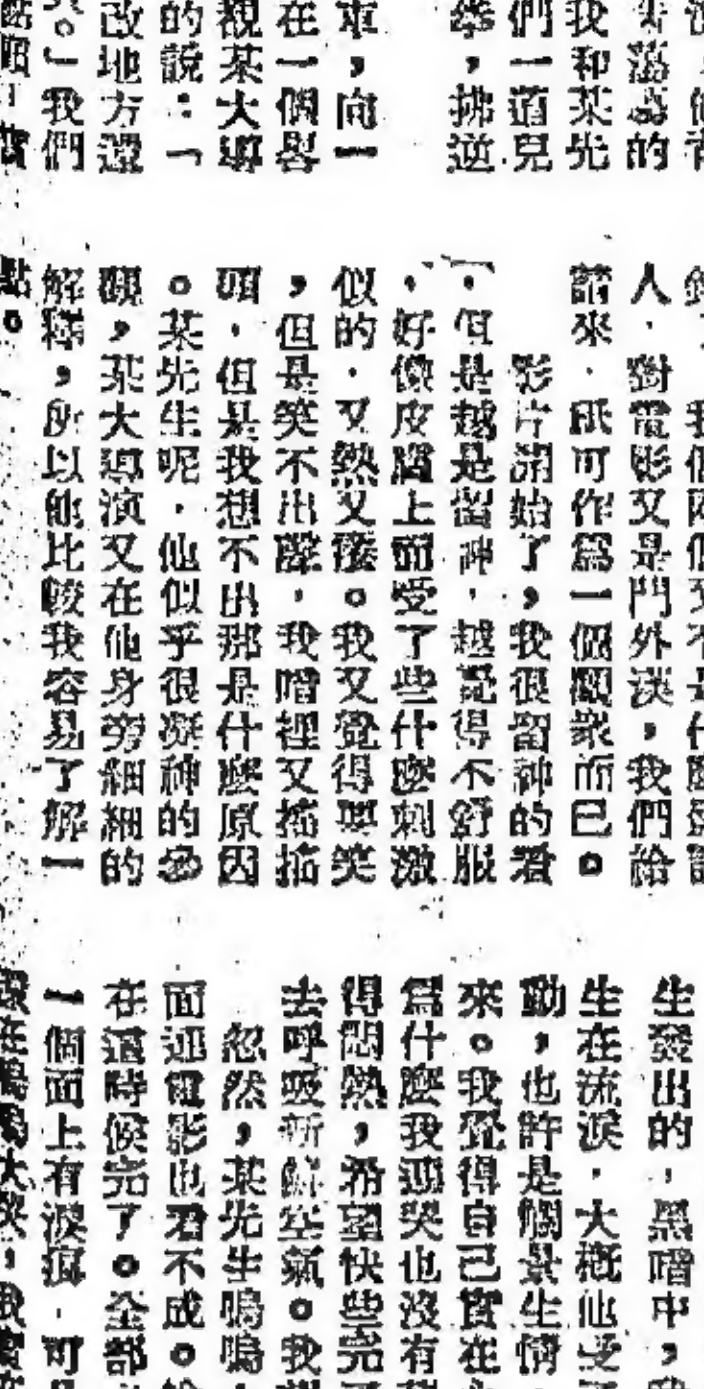 非滿意的
我和某先
們一道兒
拂逆
車,向一
在一個
觀某大導
的說:「
改地方還
。」我們
人.對電影又是門外漢,我們給
請來.祇可作爲一個觀衆而已。
影片開始了,我很留神的看
.但是越是留神.越覺得不舒服
.好像皮膚上面受了些什麼刺激
似的.又熱又癢。我又覺得要笑
,但是笑不出聲.我暗裡又搖搖
頭.但是我想不出那是什麼原因
。某先生呢.他似乎很凝神的
觀,某大導演又在他身旁細細的
解釋,所以他比較我容易了解一
點。
生發出的,黑暗中,
生在流淚.大概他受
動,也許是觸景生情
來。我覺得自己實在
爲什麼我連哭也沒有
得悶熱,希望快些完
去呼吸新鮮空氣。我
忽然,某先生嗚嗚
面連電影也看不成。
在這時候完了。全部
一個面上有淚痕.可